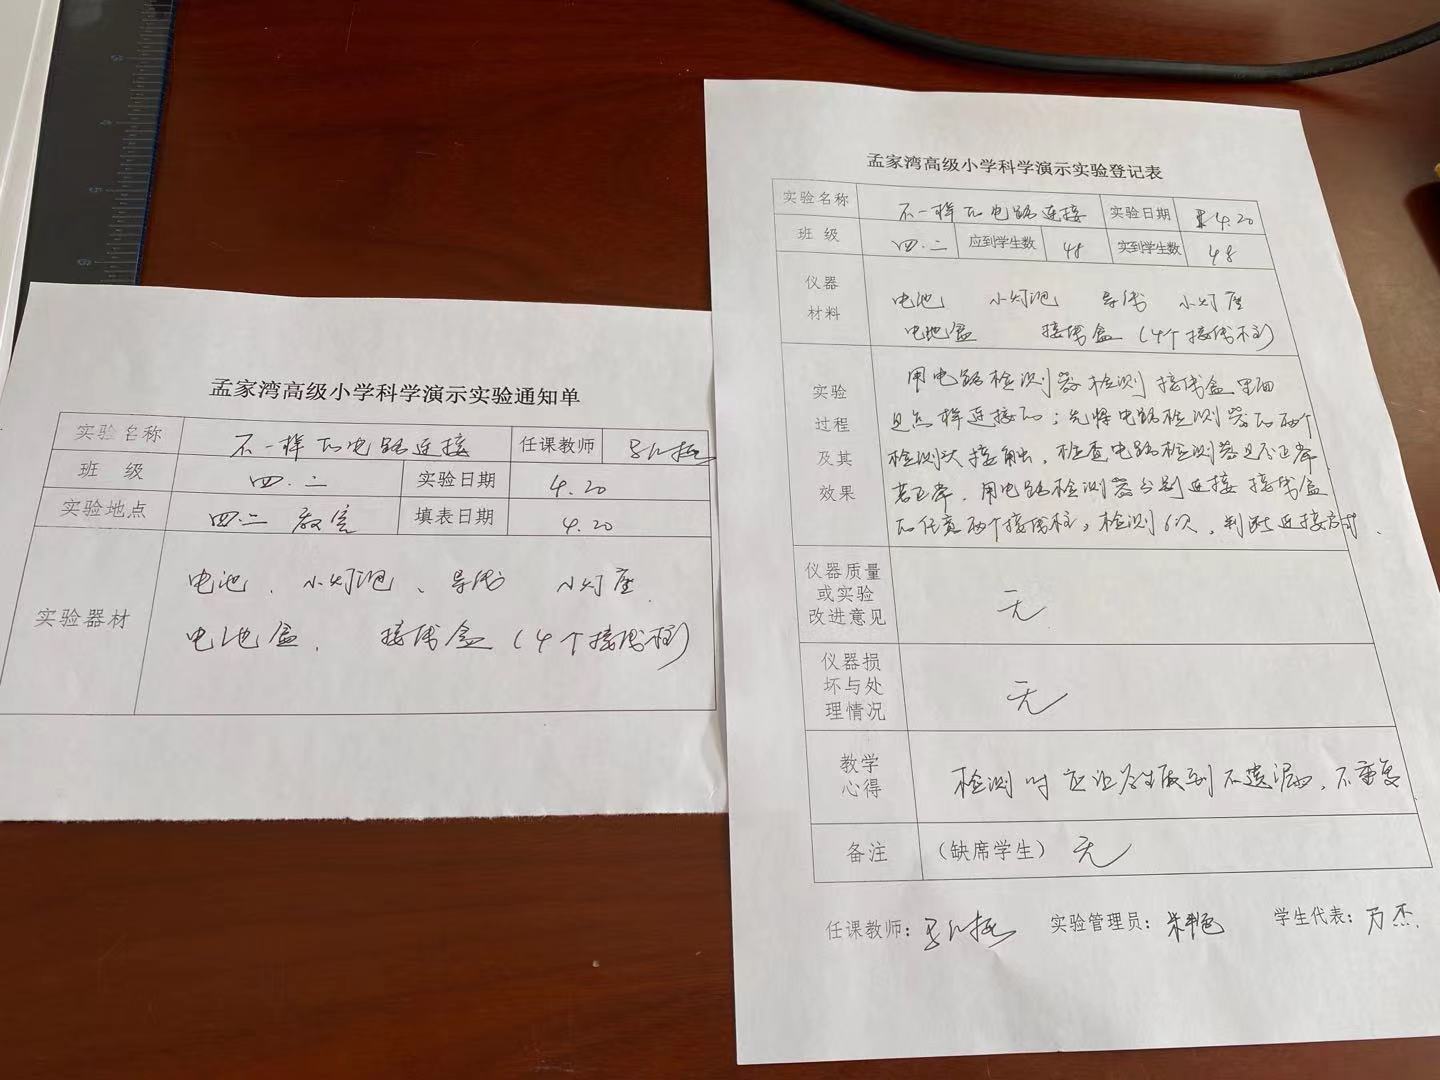 孟家湾高级小学科学演示实验通知单
实验名称 不一样的电路连接 任课教师
班 级 四.二 实验日期 4.20
实验地点 四.二 教室 填表日期 4.20
实验器材
电池、小灯泡、导线 小灯座
电池盒. 接线盒(4个接线柱)
孟家湾高级小学科学演示实验登记表
实验名称 不一样的电路连接 实验日期 4.20
班 级 四.二 应到学生数 48 实到学生数 48
仪器
材料
电池 小灯泡 导线 小灯座
电池盒 接线盒(4个接线柱)
实验
过程
及其
效果
用电路检测器检测接线盒里面
是怎样连接的;先将电路检测器的两个
检测头接触,检查电路检测器是否正常
若正常,用电路检测器分别连接接线盒
的任意两个接线柱,检测6次,判断连接方式.
仪器质量
或实验
改进意见
无
仪器损
坏与处
理情况
无
教学
心得
检测时应让学生做到不遗漏,不重复
备注 (缺席学生) 无
任课教师: 实验管理员: 学生代表:万杰.